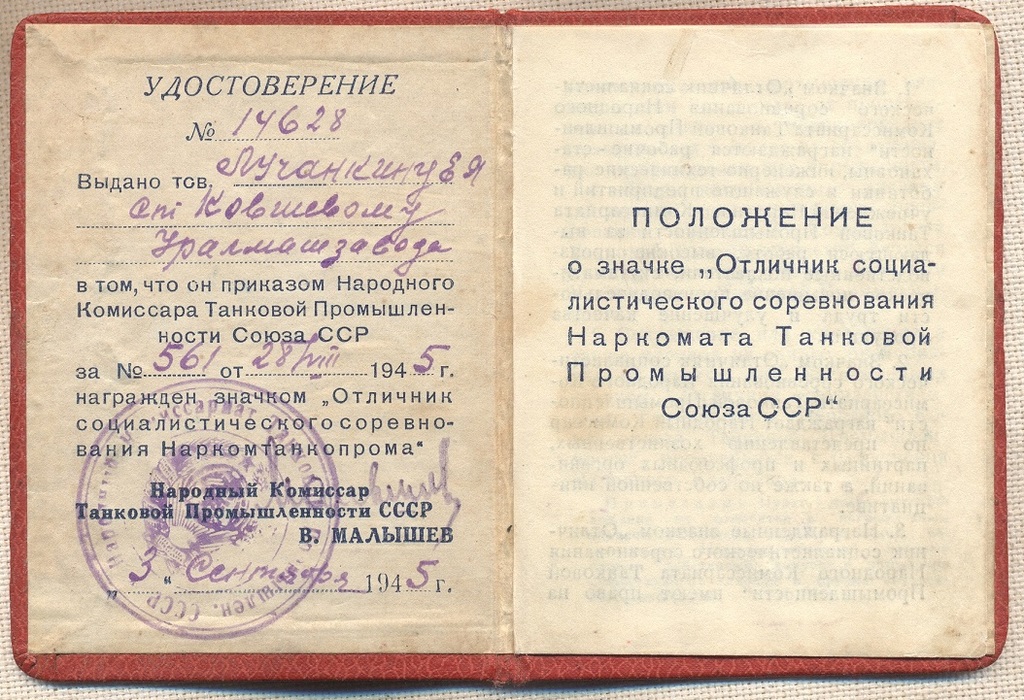 УДОСТОВЕРЕНИЕ
№ 14628
Выдано тов.
Ковшевому
Уралмашзавода
в том, что он приказом Народного
Комиссара Танковой Промышлен-
ности Союза ССР
за № 561 от 28/VIII 1945 г.
награжден значком „Отличник
социалистического соревно-
вания Наркомтанкопрома“
Народный Комиссар
Танковой Промышленности СССР
В. МАЛЫШЕВ
„3“ Сентября 1945 г.
ПОЛОЖЕНИЕ
о значке „Отличник социа-
листического соревнования
Наркомата Танковой
Промышленности
Союза ССР“